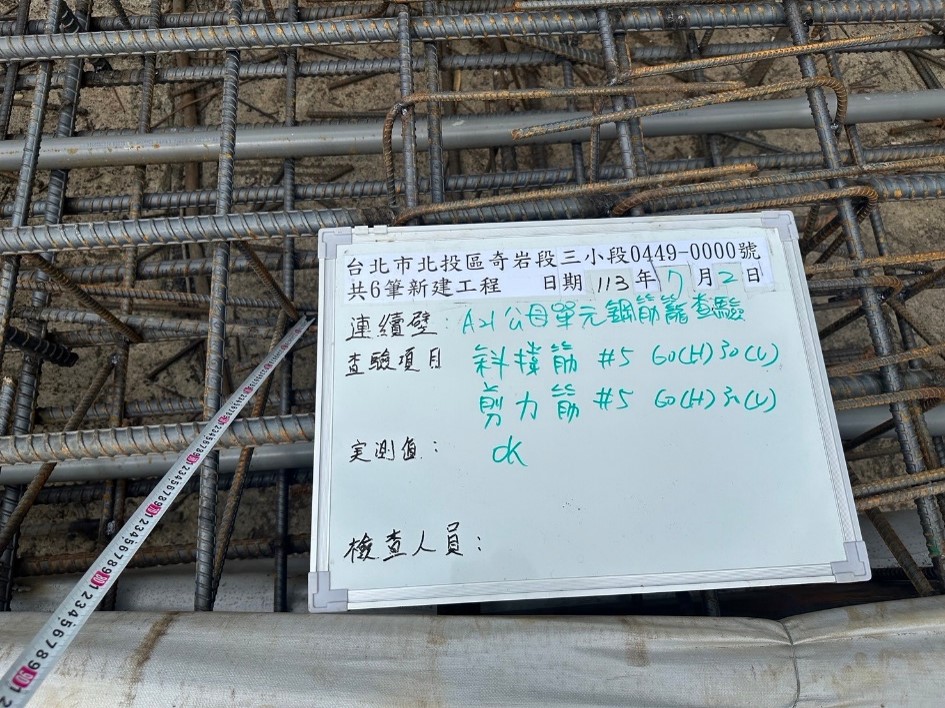 台北市北投區奇岩段三小段0449-0000號
共6筆新建工程 日期 113年 7月 2日
連續壁: A21公母單元鋼筋籠查驗
查驗項目 斜撐筋 #5 60(H) 30(V)
剪力筋 #5 60(H) 30(V)
実測值: OK
檢查人員: